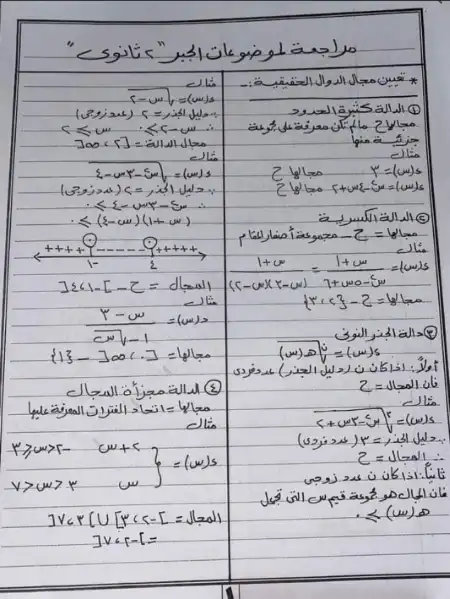 مراجعة لموضوعات الجبر "٢ ثانوى"
* تعيين مجال الدوال الحقيقية:ـ
① الدالة كثيرة الحدود
مجالها ح مالم تكن معرفة على مجموعة
جزئية منها
مثال
د(س) = ٣ مجالها ح
د(س) = س² - ٤س + ٢ مجالها ح
② الدالة الكسرية
مجالها = ح - مجموعة أصفار المقام
مثال
د(س) = (س + ١) / (س² - ٥س + ٦) = (س + ١) / ((س - ٣)(س - ٢))
مجالها = ح - {٢، ٣}
③ دالة الجذر النونى
د(س) = ⁿ√ھ(س)
أولاً: اذا كان ن (دليل الجذر) عدد فردى
فان المجال = ح
مثال
د(س) = ³√(س² - ٣س + ٢)
∵ دليل الجذر = ٣ (عدد فردى)
∴ المجال = ح
ثانياً: اذا كان ن عدد زوجى
فان المجال هو مجموعة قيم س التى تجعل
ھ(س) ≥ ٠
مثال
د(س) = √(س - ٢)
∵ دليل الجذر = ٢ (عدد زوجى)
∴ س - ٢ ≥ ٠ س ≥ ٢
مجال الدالة = [٢، ∞[
مثال
د(س) = √(س² - ٣س - ٤)
∵ دليل الجذر = ٢ (عدد زوجى)
∴ س² - ٣س - ٤ ≥ ٠
(س + ١)(س - ٤) ≥ ٠
++++ - - - - - +++++
-١ ٤
المجال = ح - ]-١، ٤[
مثال
د(س) = (س - ٣) / (√س - ١)
مجالها = [٠، ∞[ - {١}
④ الدالة مجزأة المجال
مجالها = اتحاد الفترات المعرفة عليها
مثال
د(س) = { س + ٢ -٢ < س ≤ ٣
س ٣ < س < ٧
المجال = ]-٢، ٣] ∪ ]٣، ٧[
= ]-٢، ٧[